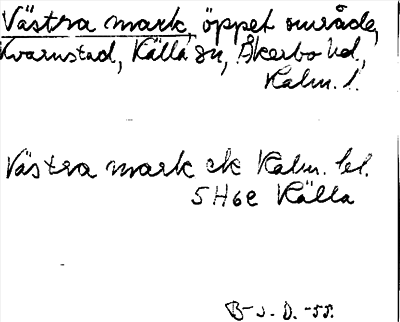 Västra mark, öppet område,
Kvarnstad, Källa sn, Åkerbo hd,
Kalm. l.
Västra mark ek Kalm. bl.
5H6e Källa
B-s. D. -55.